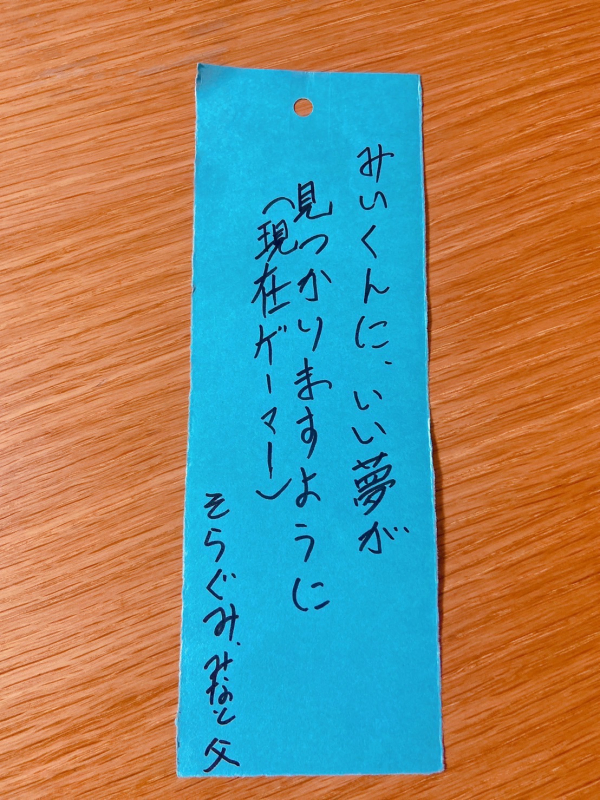 みいくんに、いい夢が
見つかりますように
(現在ゲーマー)
そらぐみ、みなと 父